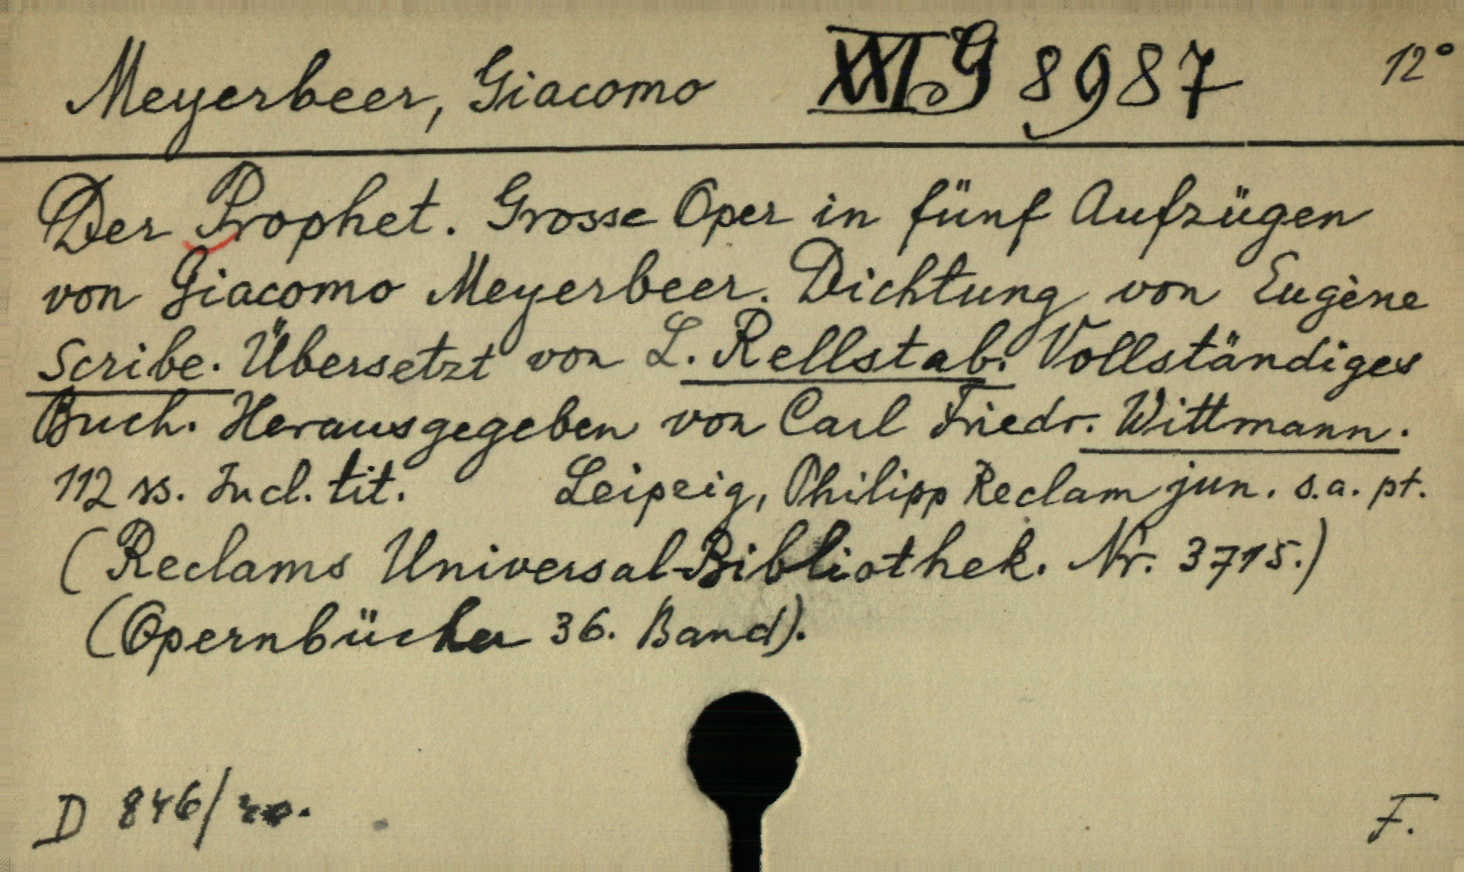 Meyerbeer, Giacomo XXI G 8987 12°
Der Prophet. Grosse Oper in fünf Aufzügen
von Giacomo Meyerbeer. Dichtung von Eugène
Scribe. Übersetzt von L. Rellstab. Vollständiges
Buch. Herausgegeben von Carl Friedr. Wittmann.
112 ss. Incl. tit. Leipzig, Philipp Reclam jun. s.a. pt.
(Reclams Universal-Bibliothek. Nr. 3715.)
(Opernbücher 36. Band).
D 846/
F.